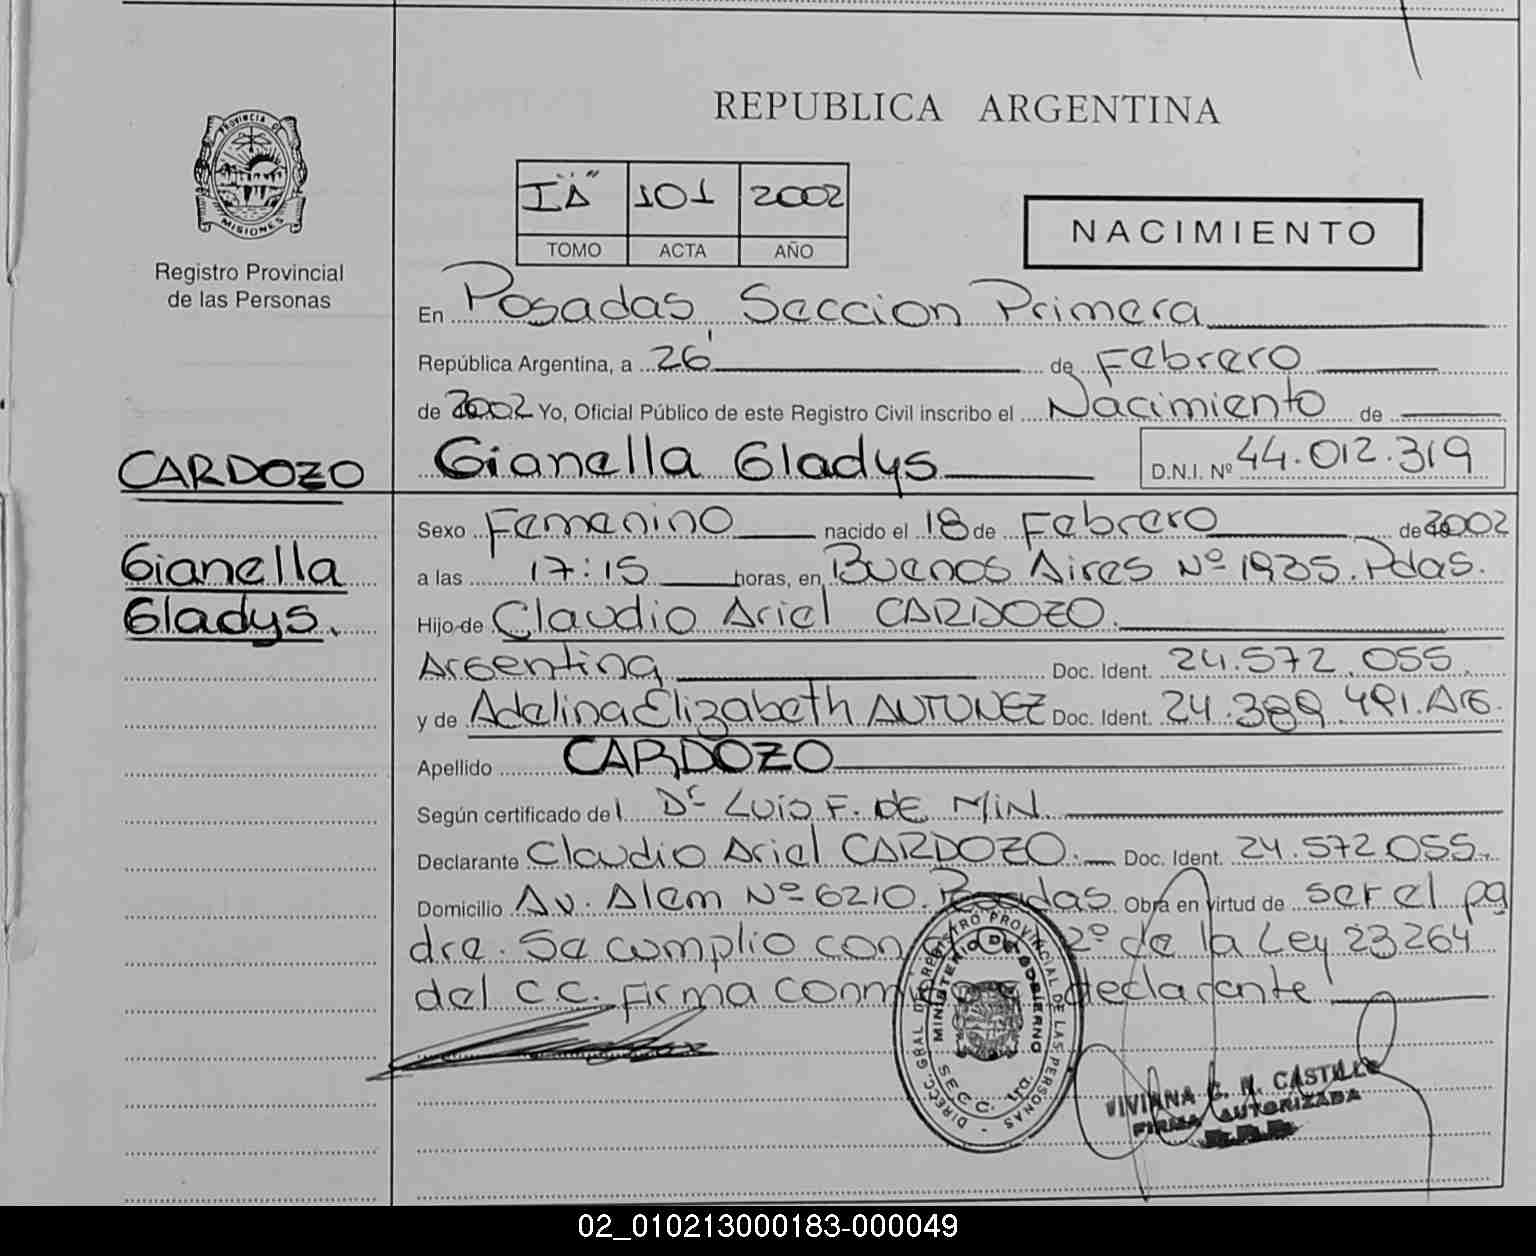 REPUBLICA ARGENTINA
PROVINCIA D
MISIONES
Registro Provincial
de las Personas
I "A" 101 2002
TOMO ACTA AÑO
NACIMIENTO
En Posadas, Seccion Primera
República Argentina, a 26 de Febrero
de 2002 Yo, Oficial Público de este Registro Civil inscribo el Nacimiento de
Gianella Gladys D.N.I. Nº 44.012.319
CARDOZO
Gianella
Gladys.
Sexo Femenino nacido el 18 de Febrero de 2002
a las 17:15 horas, en Buenos Aires Nº 1935. Pdas.
Hijo de Claudio Ariel CARDOZO.
Argentina Doc. Ident. 24.572.055.
y de Adelina Elizabeth ANTUNEZ Doc. Ident. 24.389.491. ARG.
Apellido CARDOZO
Según certificado del Dr Luis F. DE MIN.
Declarante Claudio Ariel CARDOZO. Doc. Ident. 24.572.055.
Domicilio Av. Alem Nº 6210. Posadas Obra en virtud de ser el pa
dre. Se cumplio con 2º de la Ley 23264
del C.C. Firma declarante
DIRECC. GRAL DE REGISTRO PROVINCIAL DE LAS PERSONAS
MINISTERIO DE GOBIERNO
SECC. 1ra.
VIVIANA C. N. CASTILLO
FIRMA AUTORIZADA
02_010213000183-000049